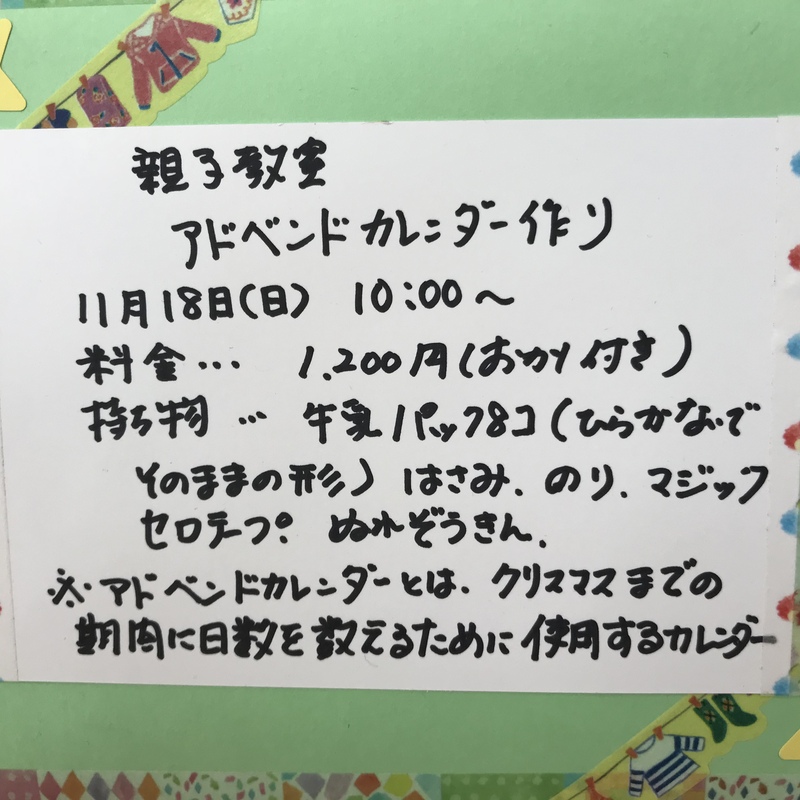 親子教室
アドベンドカレンダー作り
11月18日(日) 10:00〜
料金… 1.200円(おかし付き)
持ち物… 牛乳パック8コ(ひらかないで
そのままの形) はさみ、のり、マジック
セロテープ。ぬれぞうきん、
※アドベンドカレンダーとは、クリスマスまでの
期間に日数を数えるために使用するカレンダー